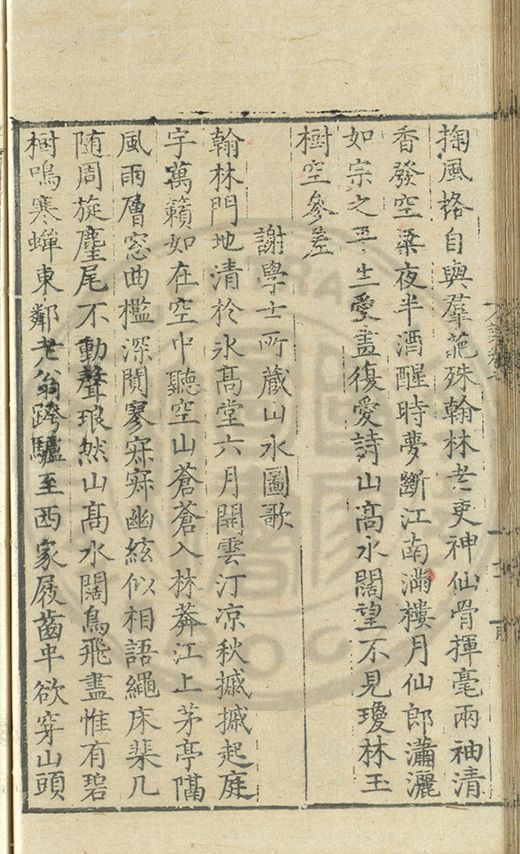 掬風格自與羣葩殊翰林老吏神仙骨揮毫兩袖清
香發空梁夜半酒醒時夢斷江南滿樓月仙郎瀟灑
如宗之平生愛畫復愛詩山高水闊望不見瓊林玉
樹空參差
謝學士所藏山水圖歌
翰林門地清於氷高堂六月開雲汀凉秋摵摵起庭
宇萬籟如在空中聽空山蒼蒼入林莽江上茅亭隔
風雨層窓曲檻深閴寥寐寐幽絃似相語繩床棐几
随周旋麈尾不動聲琅然山高水闊鳥飛盡惟有碧
樹鳴寒蟬東鄰老翁跨驢至西家屐齒牢欲穿山頭